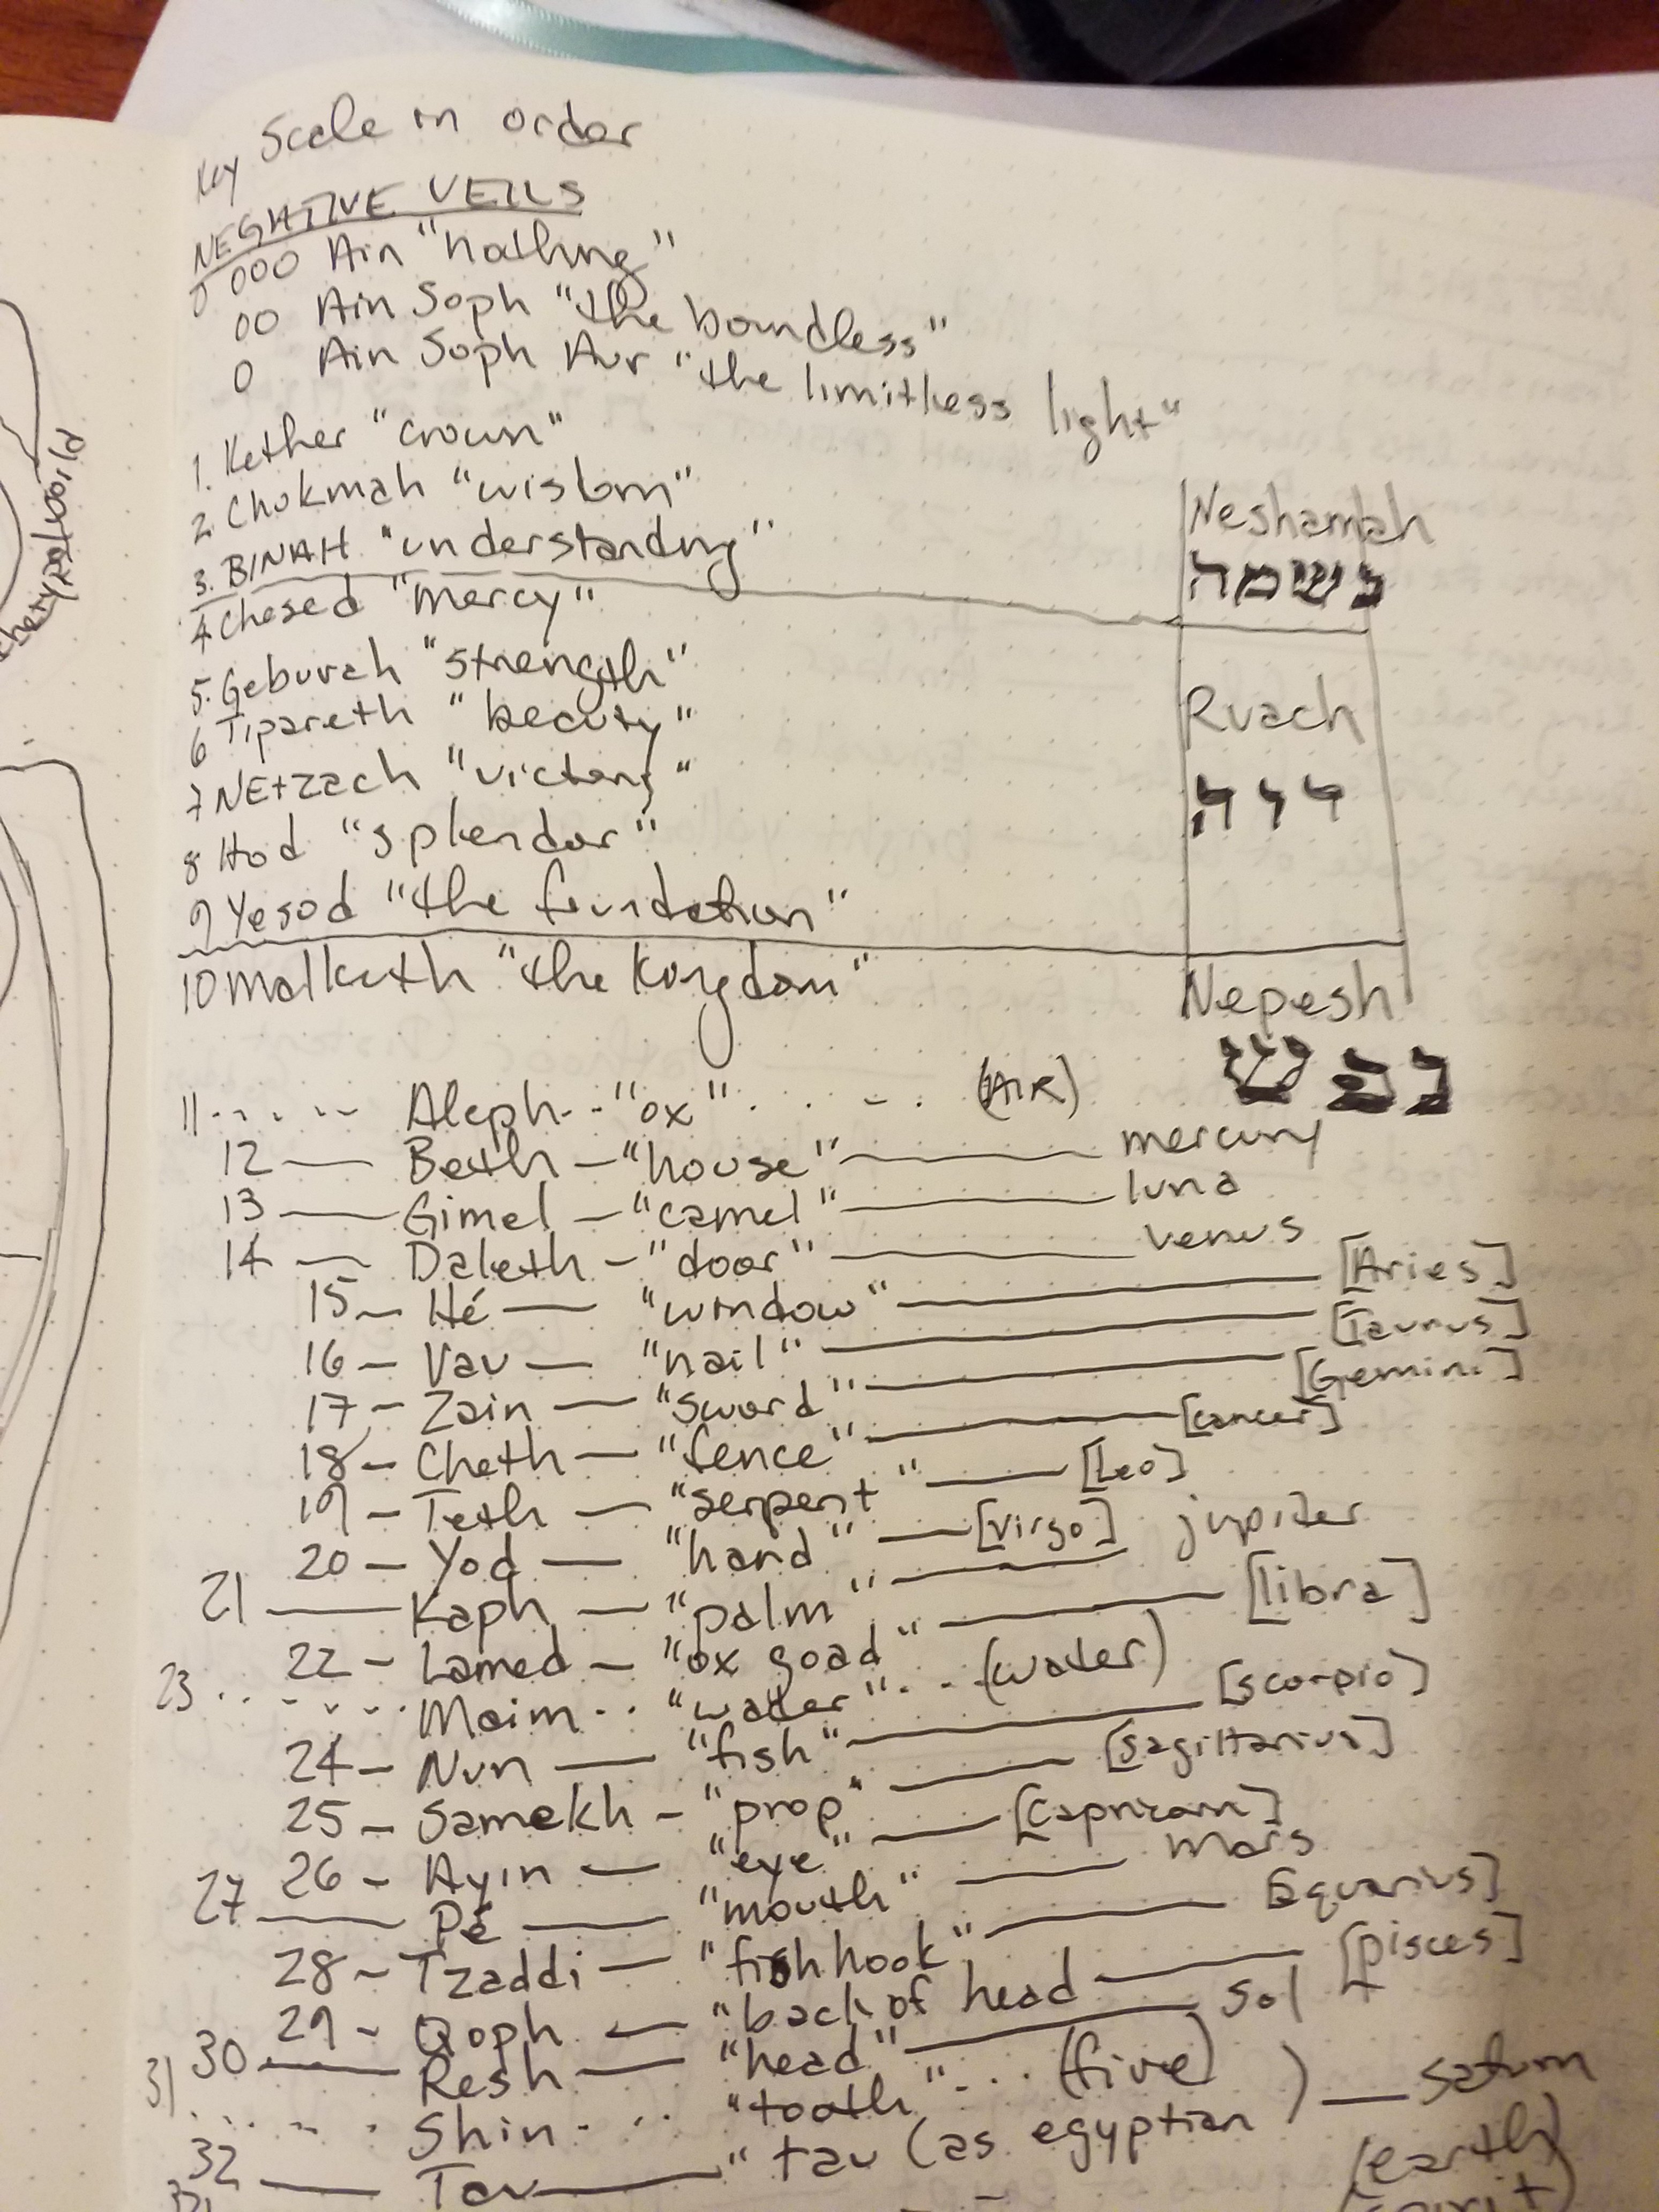 Key Scale in order
NEGATIVE VEILS
0 000 Ain "nothing"
00 Ain Soph "the boundless"
0 Ain Soph Aur "the limitless light"
1. Kether "crown"
2. Chokmah "wisdom"
3. BINAH "understanding"
Neshamah
נשמה
4 Chesed "mercy"
5. Geburah "strength"
6 Tipareth "beauty"
7 NEtzach "victory"
8 Hod "splendor"
9 Yesod "the foundation"
Ruach
10 Malkuth "the Kingdom"
Nepesh
נפש
11 ..... Aleph.."ox"..... (AIR)
12 — Beth — "house" — mercury
13 — Gimel — "camel" — luna
14 — Daleth — "door" — venus
15 — Hé — "window" — [Aries]
16 — Vav — "nail" — [Taurus]
17 — Zain — "sword" — [Gemini]
18 — Cheth — "fence" — [cancer]
19 — Teth — "serpent" — [Leo]
20 — Yod — "hand" — [virgo]
21 — Kaph — "palm" — jupiter
22 — Lamed — "ox goad" — [libra]
23 ...... Maim.. "water"... (water)
24 — Nun — "fish" — [scorpio]
25 — Samekh — "prop" — [sagittarius]
26 — Ayin — "eye" — [Capricorn]
27 — Pé — "mouth" — mars
28 — Tzaddi — "fish hook" — [Aquarius]
29 — Qoph — "back of head — [pisces]
30 — Resh — "head" — Sol
31 ...... Shin... "tooth"... (fire)
32 — Tav — "tau (as egyptian ) — saturn
(earth)